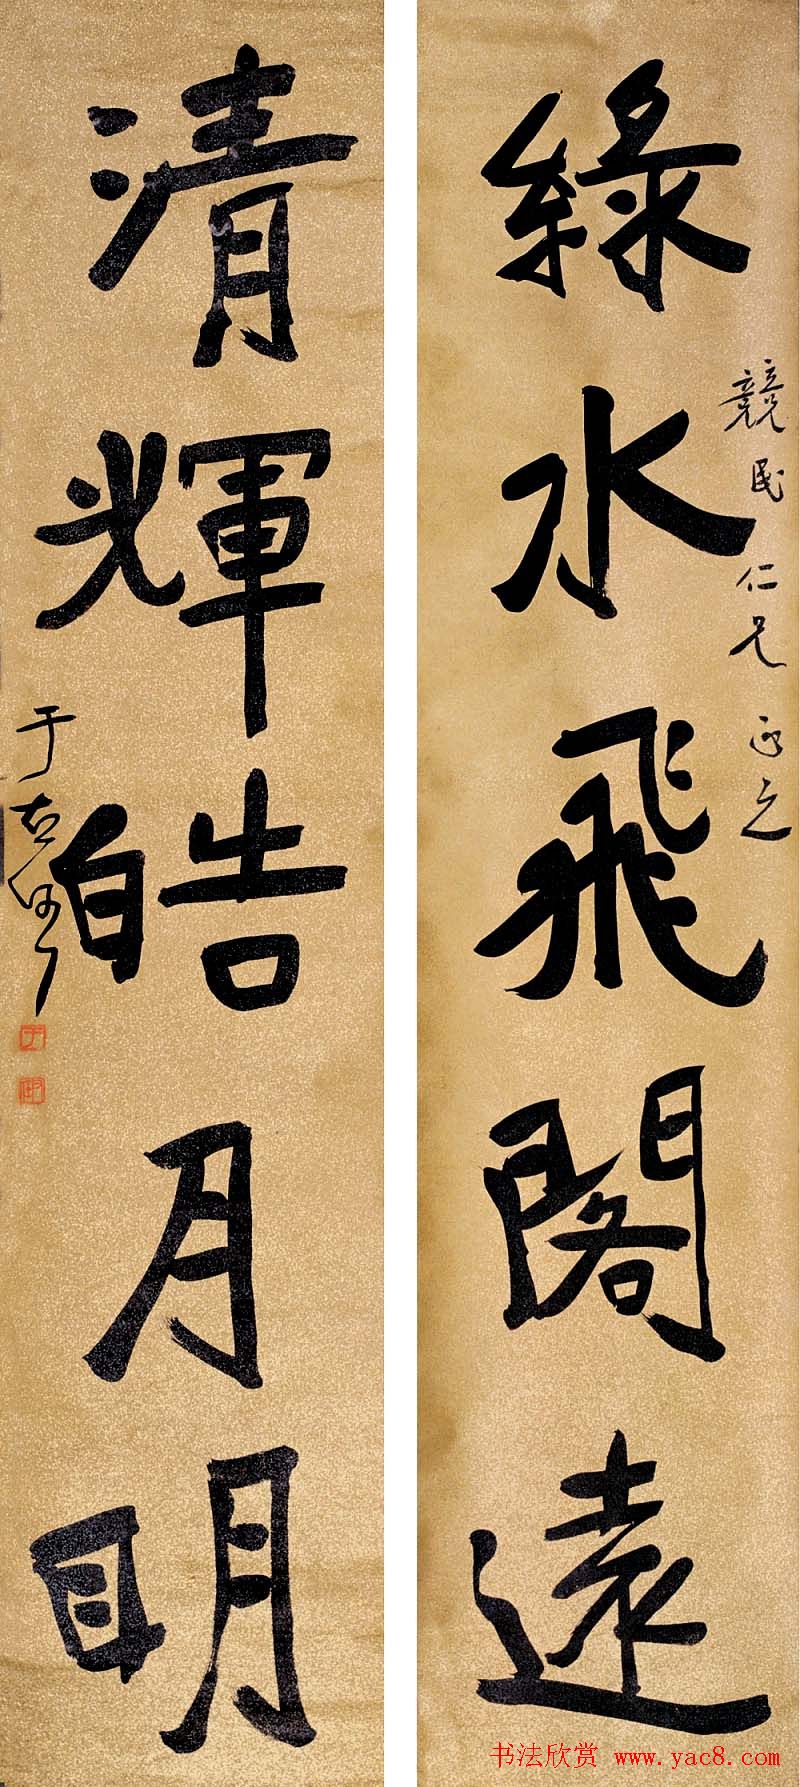 競民仁兄正之
綠水飛閣遠
清輝皓月明
于右任
书法欣赏 www.yac8.com